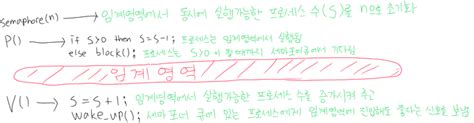 Semaphore(n) → 임계영역에서 동시에 실행가능한 프로세스 수(S)를 n으로 초기화
P() → if S>0 then S=S-1; 프로세스는 임계영역에서 실행됨
else block(); 프로세스는 S>0이 될때까지 세마포어큐에서 기다림
임계영역
V() → S=S+1; 임계영역에서 실행가능한 프로세스 수를 증가시켜 주고
wake_up(); 세마포어 큐에 있는 프로세스에게 임계영역에 진입해도 좋다는 신호를 보냄